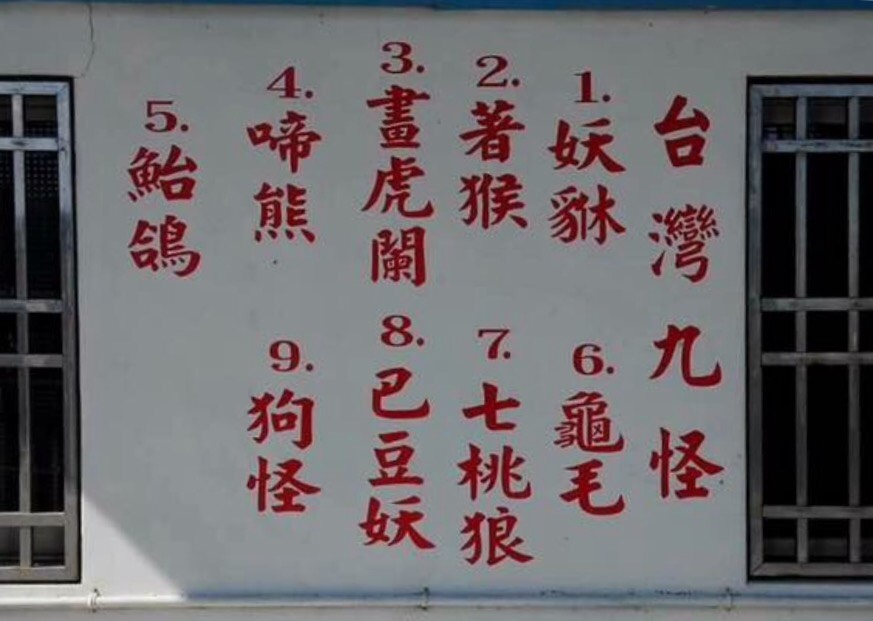 台灣九怪
1. 妖貅
2. 著猴
3. 畫虎闌
4. 啼熊
5. 鮐鴿
6. 龜毛
7. 七桃狼
8. 巴豆妖
9. 狗怪